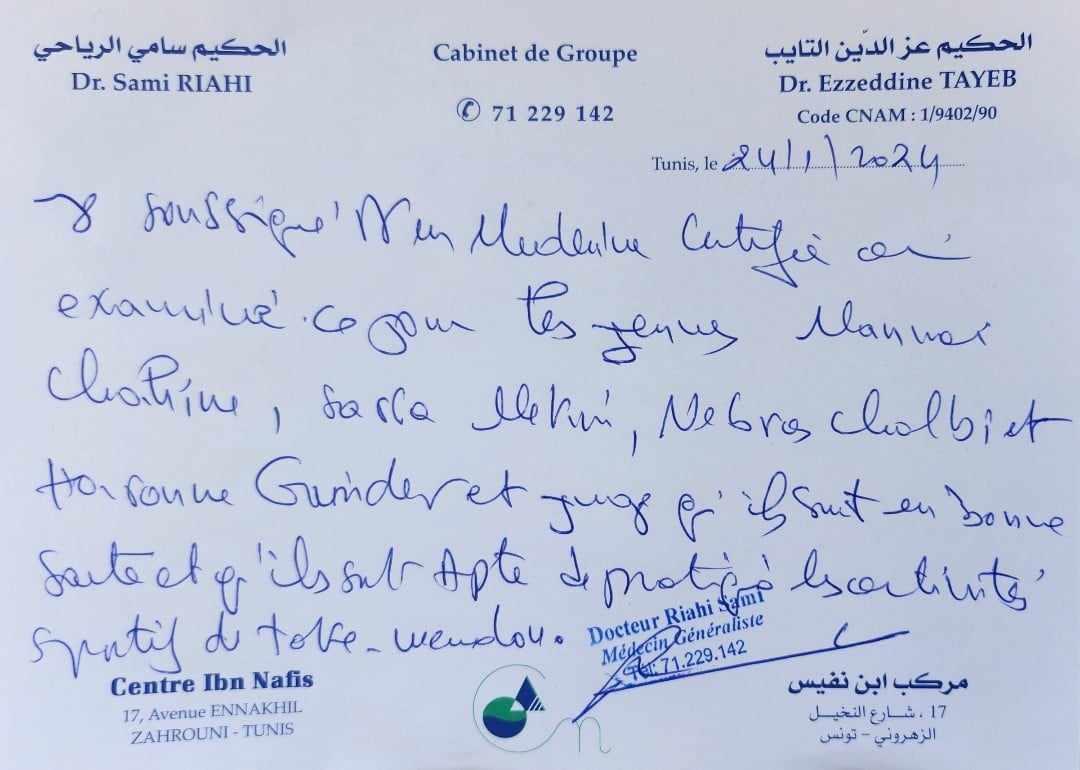 الحكيم سامي الرياحي
Dr. Sami RIAHI
Cabinet de Groupe
✆ 71 229 142
الحكيم عز الدّين التايب
Dr. Ezzeddine TAYEB
Code CNAM : 1/9402/90
Tunis, le 24/1/2024
soussigné Dr en Medecine Certifie
examiné ce jour les jeunes Mannai
Sarra Mekni, Nebras Cholbi et
et juge qu'ils sont en bonne
sante et qu'ils sont Apte de les activités
sportif de
Docteur Riahi Sami
Médecin Généraliste
Tél: 71.229.142
Centre Ibn Nafis
17, Avenue ENNAKHIL
ZAHROUNI - TUNIS
مركب ابن نفيس
17 ، شارع النخيل
الزهروني - تونس